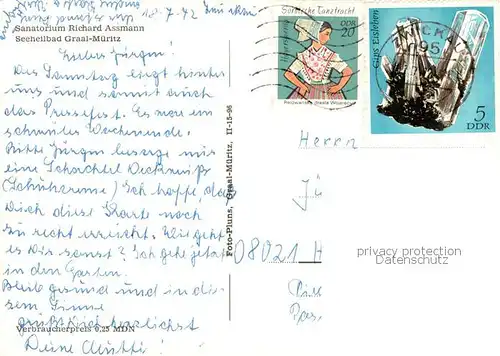 Sanatorium Richard Assmann
Seeheilbad Graal-Müritz
Lieber Jürgen!
Der Samstag liegt hinter
uns und somit auch
das Pressefest. Es war ein
schönes Wochenende.
Bitte Jürgen besorge mir
eine Schachtel
(Schuhcreme) Ich hoffe, das
Dich diese Karte noch
zu recht erreicht. Wie geht
es Dir sonst? Ich gehe jetzt
in den Garten.
Bleib gesund und in die-
sem Sinne
grüßt Dich herzlichst
Deine Mutti!
Verbraucherpreis 0,25 MDN
Foto-Pluns, Graal-Müritz, II-15-96
Sorbische Tanztracht
Hoyerswerda
DDR
20
Gips Eisleben
5
DDR
Herrn
Jü
08021 H
privacy protection
Datenschutz